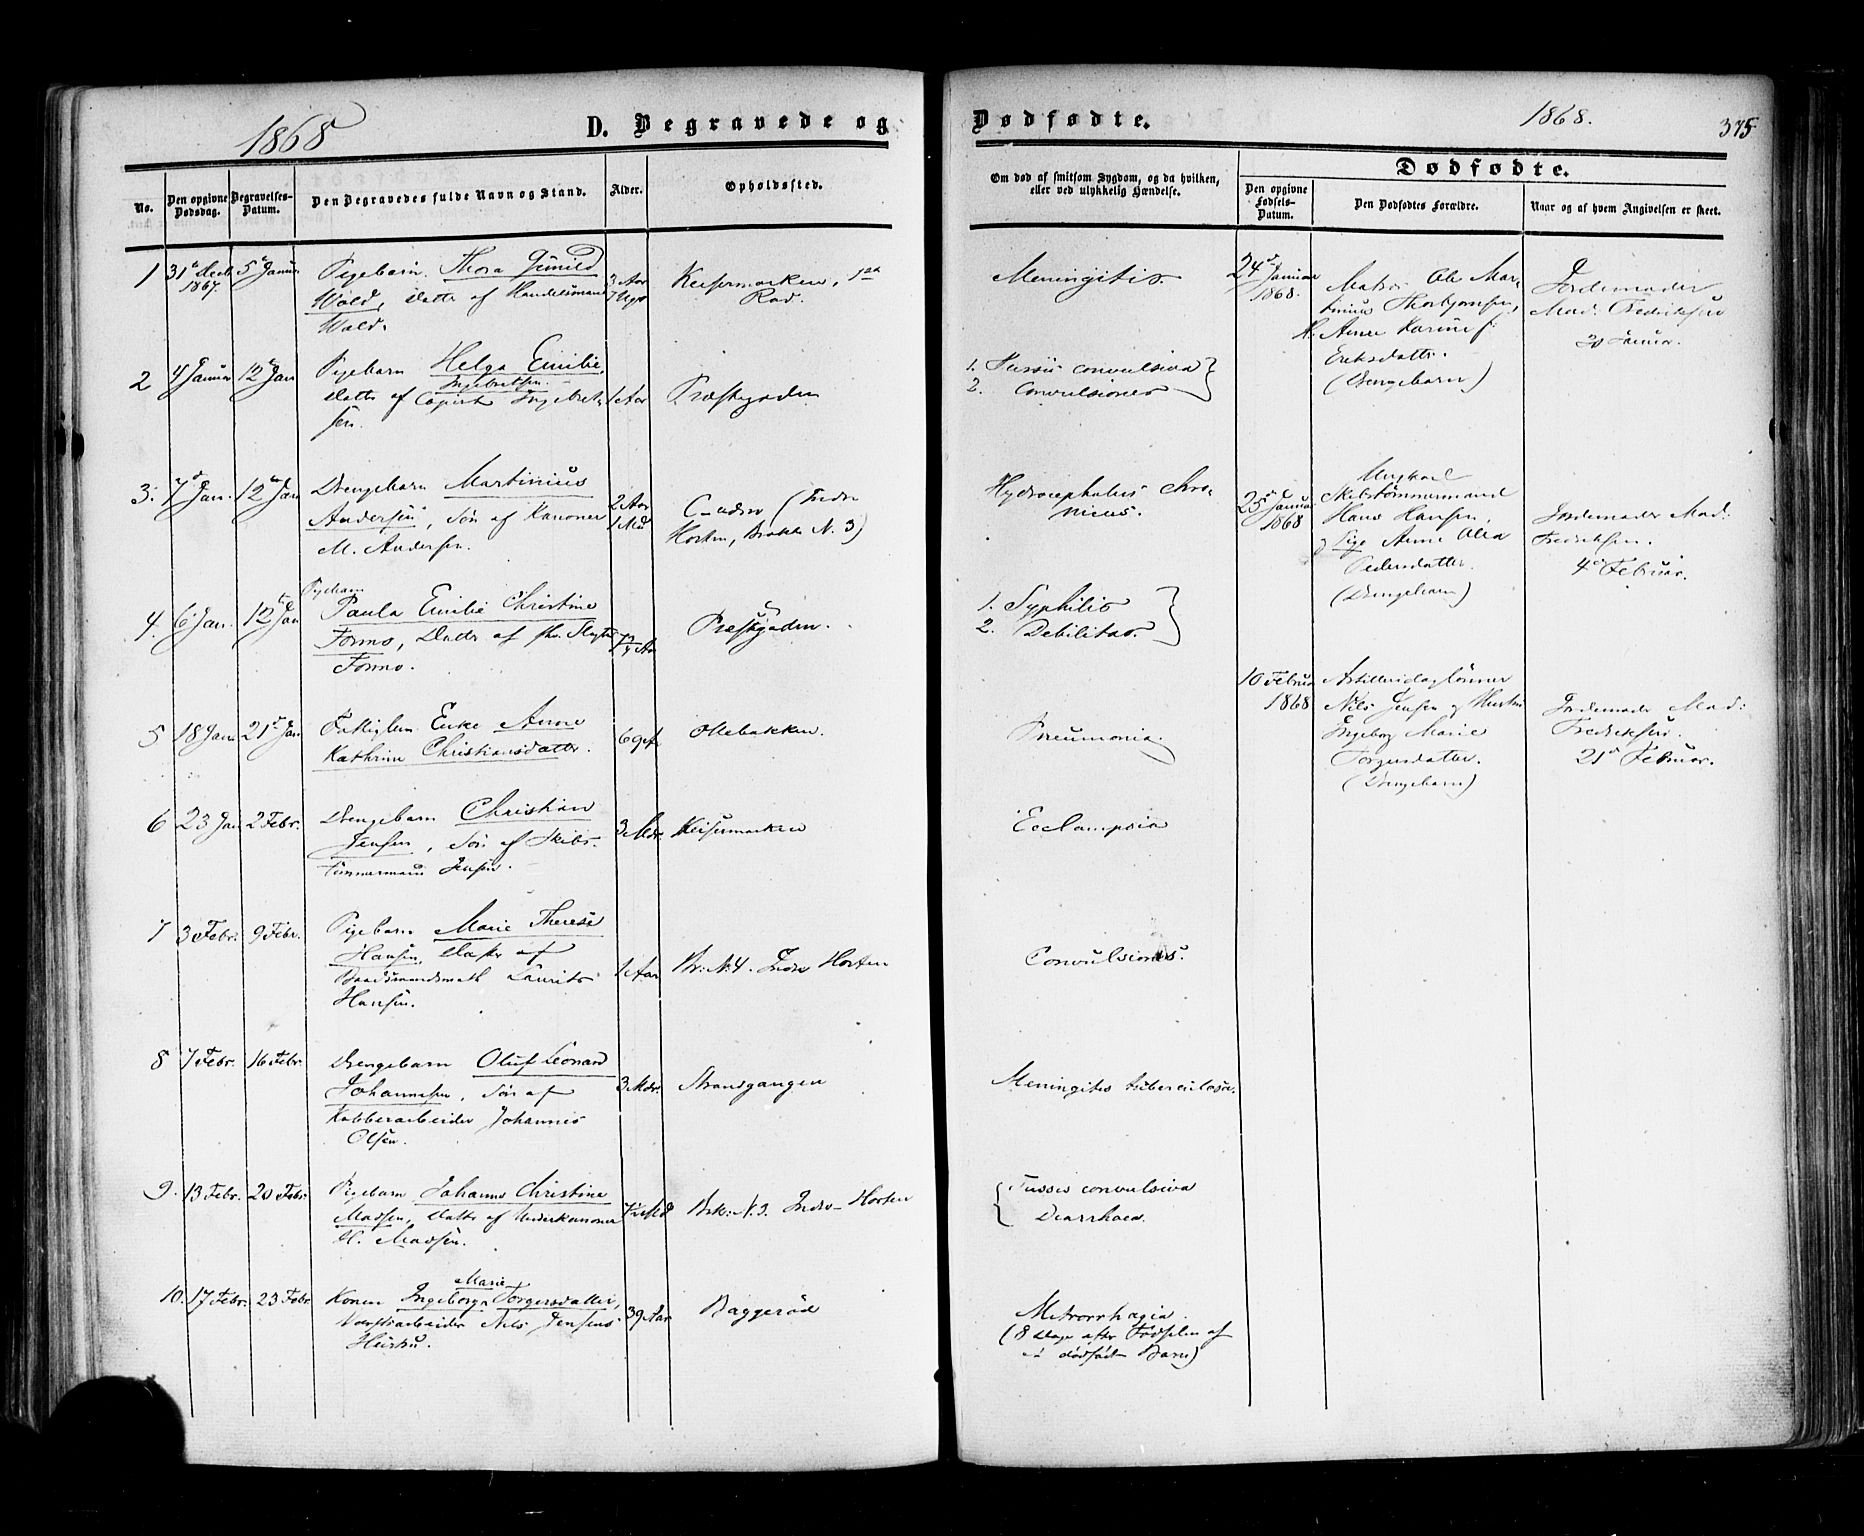 1868
D. Begravede og
No.
Den opgivne Dødsdag.
Begravelses-Datum.
Den Begravedes fulde Navn og Stand.
Alder.
Opholdssted.
1
31 Decb. 1867.
5 Januar
Pigebarn Thora Gunild
Wold, Datter af Handelsmand
Wold.
3 Aar
Keisermarken, 1ste
Rad.
2
4 Januar
12 Jan
Pigebarn Helga Emilie
Ingebretsen
Datter af Copist Ingebret-
sen.
1 Aar
Præstegaden
3.
7 Jan.
12 Jan
Drengebarn Martinius
Andersen, Søn af Kanoner
M. Andersen.
2 Aar
1 Md
(Indre
Horten, Brakke N. 3)
4.
6 Jan.
12 Jan
Pigebarn
Paula Emilie Christine
Formo, Datter af
Formo.
Præstegaden.
5
18 Jan
21 Jan
Fattiglem Enke Anne
Kathrine Christiansdatter.
69
Ollebakken.
6
23 Jan
2 Febr.
Drengebarn Christian
Jensen, Søn af Skibs-
tømmermand Jensen.
3 Mdr
Keisermarken
7
3 Febr.
9 Febr.
Pigebarn Marie Therese
Hansen, Datter af
Baadsmandsmath Laurits
Hansen.
1 Aar
Br: N: 4. Indre Horten
8
7 Febr.
16 Febr.
Drengebarn Oluf Leonard
Johannesen, Søn af
Kobberarbeider Johannes
Olsen.
3 Mdr.
Strandgangen
9.
13 Febr.
20 Febr
Pigebarn Johanne Christine
Madsen, Datter af Underkanoner
H. Madsen.
Brk: N. 3. Indre Horten
10.
17 Febr.
23 Febr
Marie
Konen Ingeborg Torgersdatter,
Værftsarbeider Nils Jensens
Hustru.
39 Aar
Baggerød
Dødfødte.
1868.
375
Om død af smitsom Sygdom, og da hvilken,
eller ved ulykkelig Hændelse.
Dødfødte.
Den opgivne Fødsels-Datum.
Den Dødfødtes Forældre.
Naar og af hvem Angivelsen er skeet.
Meningitis.
1. Tussis convulsiva
2. Convulsiones
Hydrocephalus chro-
nicus.
1. Syphilis
2. Debilitas.
Pneumonia.
Ecclampsia
Convulsiones.
Meningitis tuberculosa.
Tussis convulsiva
Diarrhoea.
Metrorrhagia.
(8 Dage efter Fødselen af
et dødfødt Barn)
24 Januar
1868.
Matros Ole Mar-
tinius Thorbjørnsen,
H. Anne Karine
Eriksdatter.
(Drengebarn)
Jordemoder
Mad. Fredriksen
30 Januar.
25 Januar
1868
Ungkarl
Skibstømmermand
Hans Hansen,
Pige Anne Olea
Pedersdatter.
(Drengebarn)
Jordemoder Mad:
Fredriksen.
4 Februar.
10 Februar
1868
Artilleridaglønner
Nils Jensen og Hustru
Ingeborg Marie
Torgersdatter.
(Drengebarn)
Jordemoder Mad:
Fredriksen.
21 Februar.